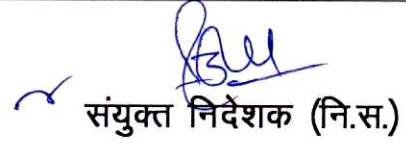 संयुक्त निदेशक (नि.स.)